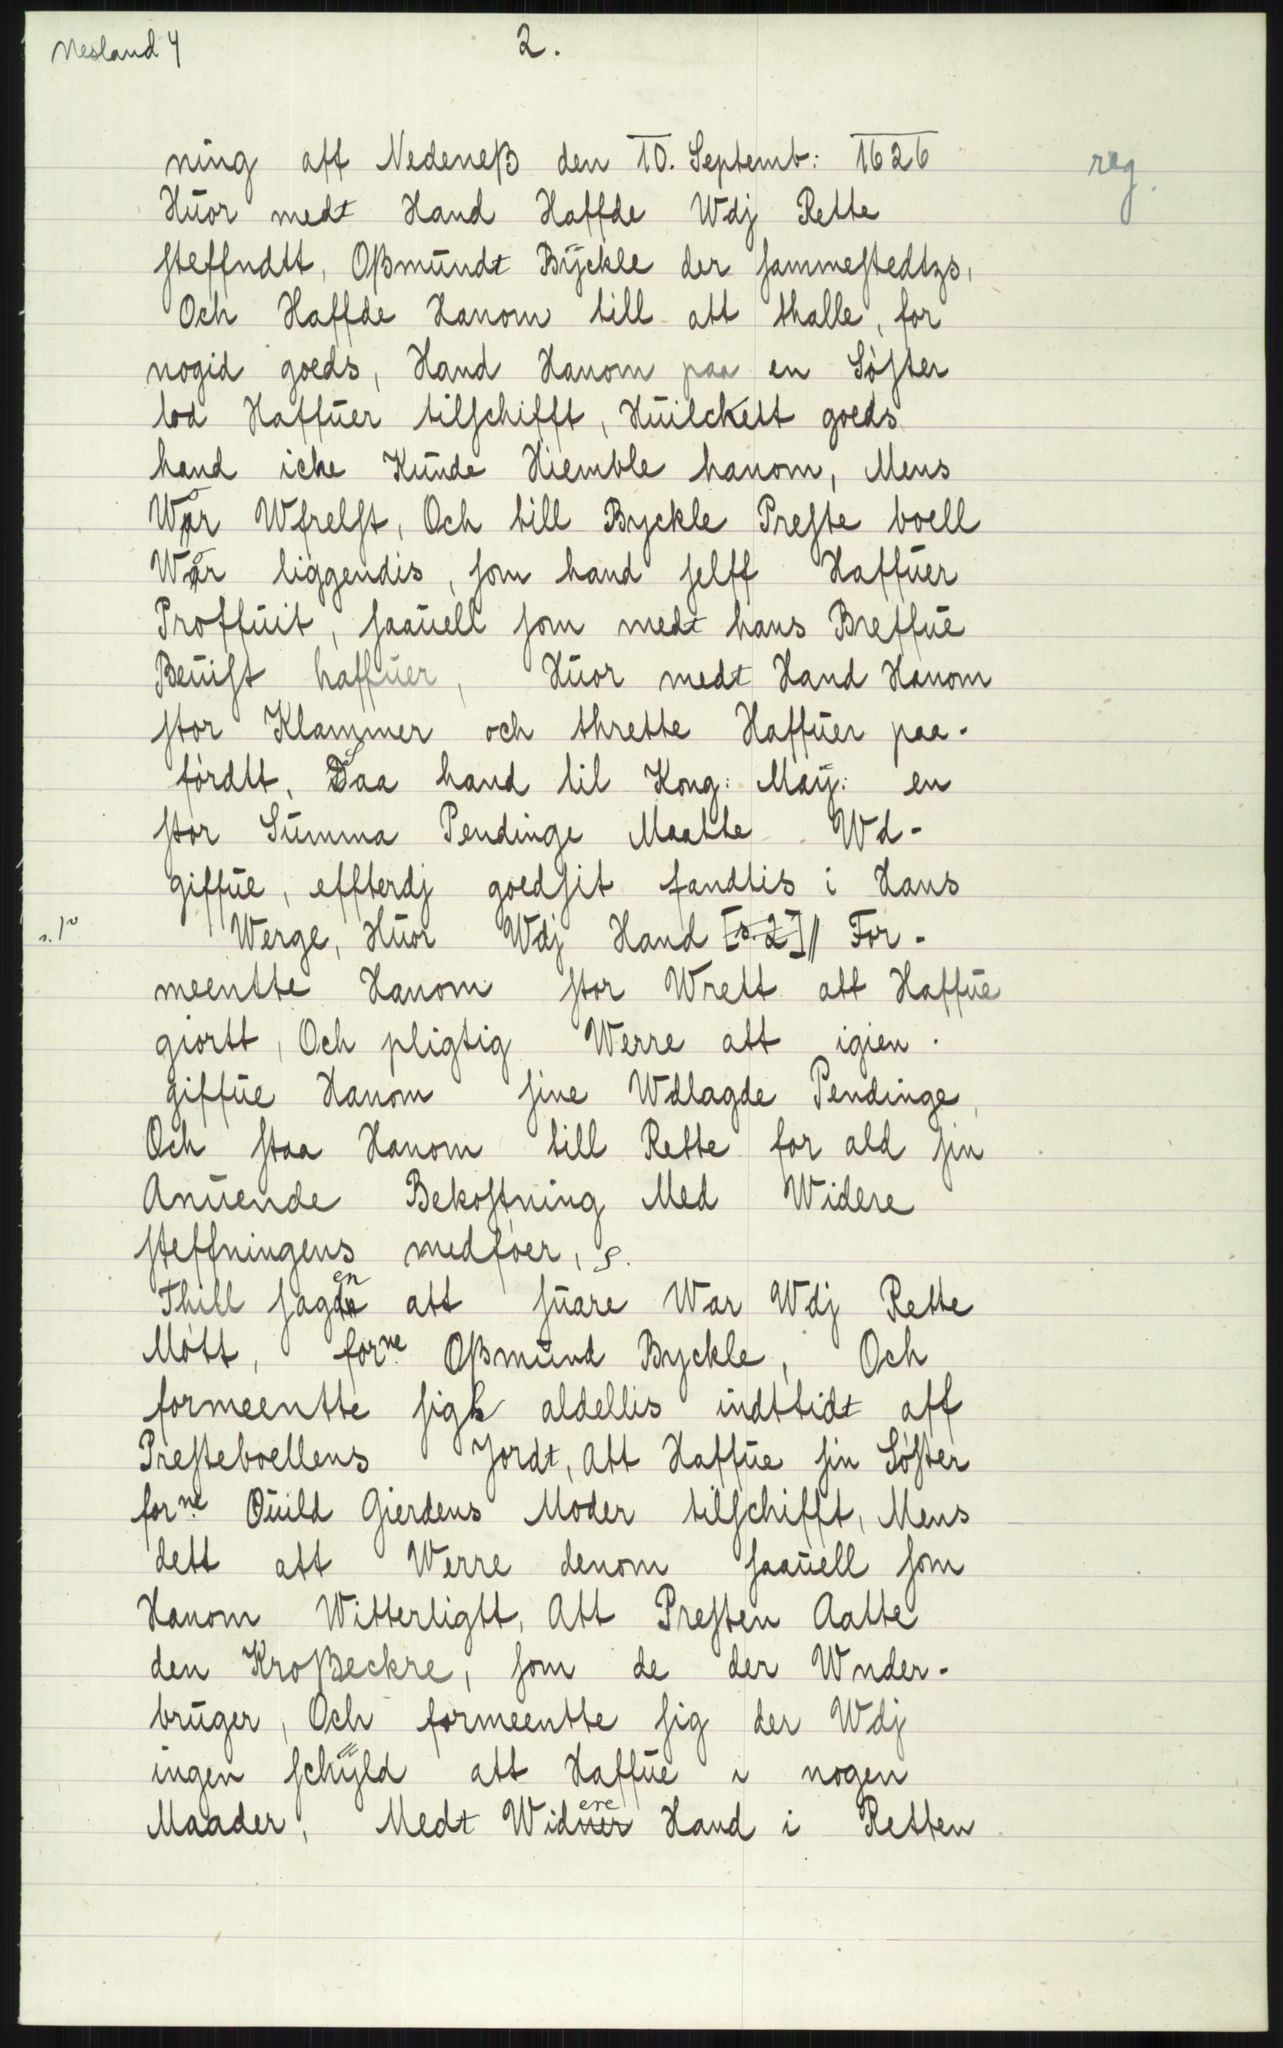 Nesland 4
2.
reg.
ning aff Nedeneß den 10. Septemb: 1626
Huor medt Hand Haffde Wdj Rette
steffndtt, Oßmundt Bÿckle der sammestedtzs,
Och Haffde Hanom till att thalle, for
nogid goeds, Hand Hanom paa en Søster
lod Haffuer tilschifft, Huilckett goeds
hand icke Kunde Hiemble hanom, Mens
War Wfrelst, Och till Byckle Preste boell
War liggendis, som hand selff Haffuer
Proffuit, saauell som medt hans Breffue
Beuist haffuer, Huor medt Hand Hanom
stor Klammer och thrette Haffuer paa-
førdtt, Saa hand til Kong: Maÿ: en
stor Summa Pendinge Maatte Wd-
giffue, effterdj goedsit fandtis i Hans
s. 1v
Werge, Huor Wdj Hand [s. 2] // For-
meentte Hanom stor Wrett att Haffue
giortt, Och pligtig Werre att igien-
giffue Hanom sine Wdlagde Pendinge,
Och staa Hanom till Rette for ald sin
Anuende Bekostning Med Widere
steffningens medføer, s.
Thill sagen att suare War Wdj Rette
Møtt, forne Oßmund Byckle, Och
formeentte sigh aldellis indttidt aff
Presteboellens Jordt, Att Haffue sin Søster
forne Ouild Gierdens Moder tilschifft, Mens
dett att Werre denom saauell som
Hanom Witterligtt, Att Presten Aatte
den Kroßeckre, som de der Wnder-
bruger, Och formeentte sig der Wdj
ingen schÿld att Haffue i nogen
Maader, Medt Widere Hand i Retten